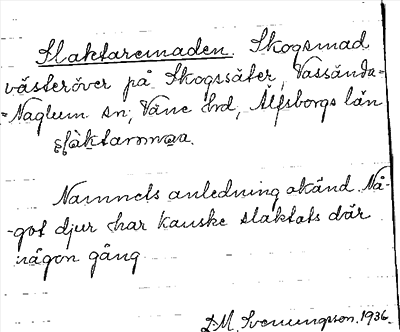 Slaktaremaden. Skogsmad
västeröver på Skogssäter, Vassända-
=Naglum sn; Väne hrd, Älfsborgs län

Namnets anledning okänd. Nå-
-got djur har kanske slaktats där
någon gång
D.M. Svenungsson. 1936.